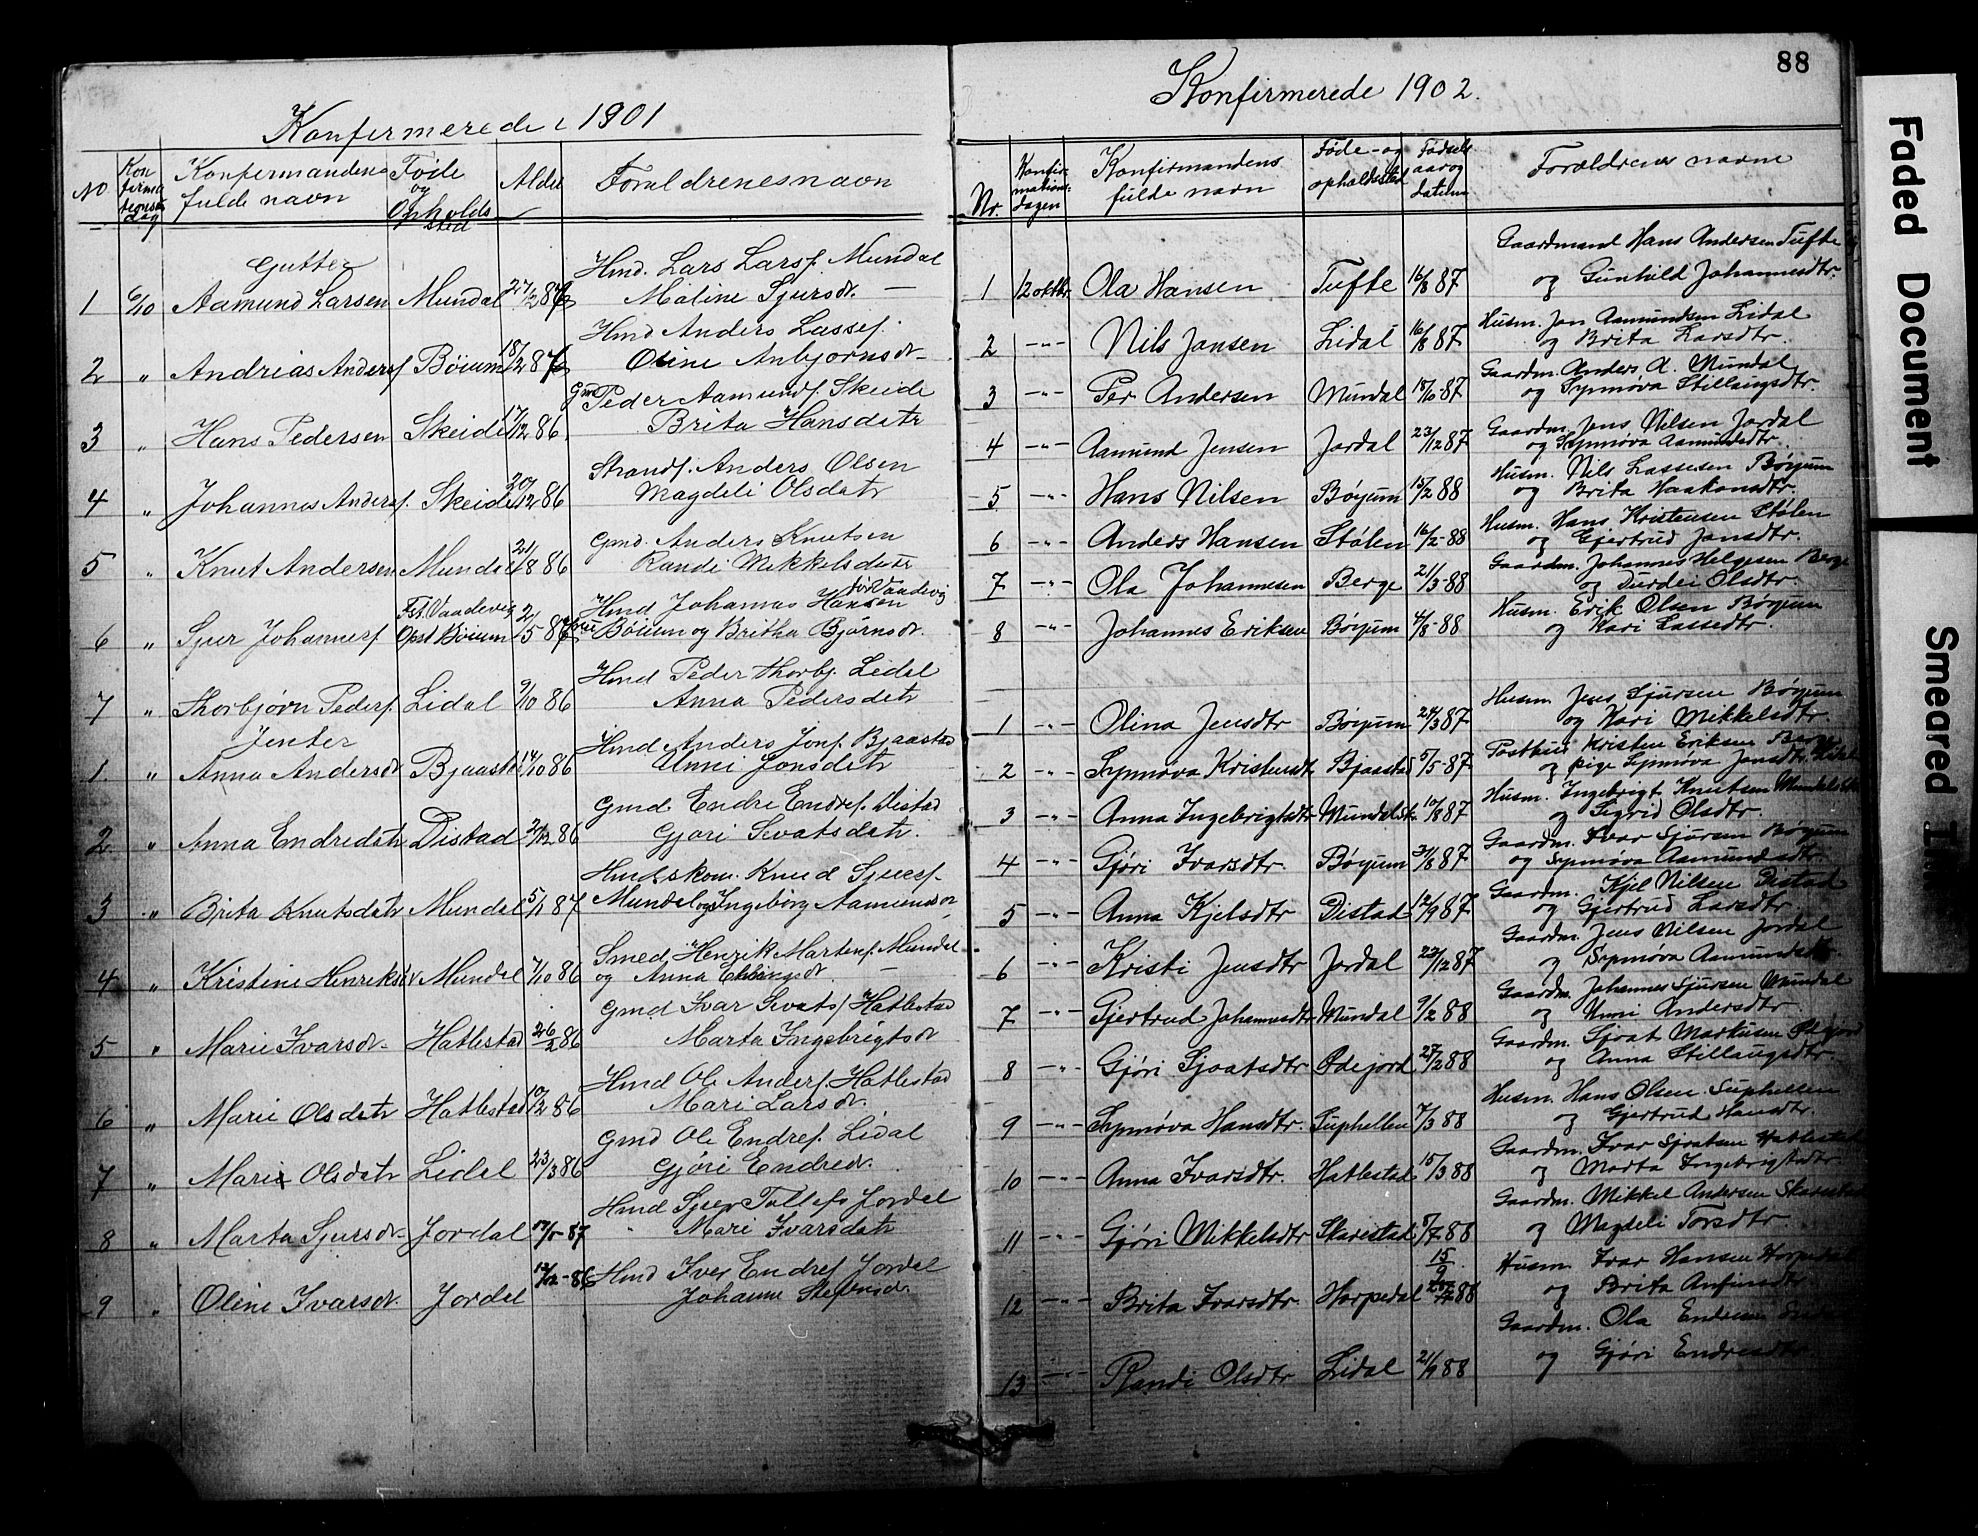 Konfirmerede 1901
No
Konfirmationsdag
Konfirmandens fulde navn
Føde og Opholdssted
Alder
Forældrenes navn
Gutter
Hmd. Lars Larss. Mundal
1 6/10 Aamund Larsen Mundal 27/12 86
Maline Sjursdr. —
Hmd Anders Lassef.
2 " Andrias Andersf Bøium 18/12 86
Oline Anbjørnsdr
Gmd Peder Aamundf. Skeide
3 " Hans Pedersen Skeide 17/12 86
Brita Hansdatr
Strandf. Anders Olsen
4 " Johannes Andersf. Skeide 20/12 86
Magdeli Olsdatr
Gmd. Anders Knutsen
5 " Knut Andersen Mundal 21/8 86
Randi Mikkelsdatr
Hmd Johannes Hansen før Vaadevig
6 " Sjur Johannesf Føt. Vaadevig Opst Bøium 2/5 86
Bøium og Britha Bjørnsdr.
Hmd Peder Thorbj. Lidal
7 " Thorbjørn Pederf. Lidal 9/10 86
Anna Pedersdatr
Jenter
Hmd Anders Jonf. Bjaastad
1 " Anna Andersdr Bjaastad 14/10 86
Unni Jonsdatr
Gmd. Endre Endref. Distad
2 " Anna Endredatr Distad 21/12 86
Gjøri Sevatsdatr.
Hmdskom. Knud Sjursf.
3 " Brita Knutsdatr Mundal 5/1 87
Mundal og Ingeborg Aamundsdr
Smed Henrik Martenf. Mundal
4 " Kristine Henriksdr Mundal 7/10 86
og Anna Ellingsdr —
Gmd Ivar Sevatsf Hatlestad
5 " Marie Ivarsdr. Hatlestad 26/2 86
Marta Ingebrigtsdr
Hmd Ole Andersf. Hatlestad
6 " Marie Olsdatr Hatlestad 10/12 86
Mari Larsdr.
Gmd Ole Endref. Lidal
7 " Marie Olsdatr Lidal 23/3 86
Gjøri Endredr.
Hmd Sjur Tollefs Jordal
8 " Marta Sjursdr. Jordal 87
Mari Ivarsdatr
Hmd Iver Endref Jordal
9 " Oline Ivarsdr. Jordal 12/12-86
Johanne Steffensdr.
88
Konfirmerede 1902.
Nr.
Konfirmationsdagen
Konfirmandens fulde navn
Føde- og opholdssted
Fødselsaar og datum
Forældrenes navne
Gaardmand Hans Andersen Tufte
1 12 oktbr. Ola Hansen Tufte 16/8 87
og Gunhild Johannesdtr.
Husm. Jon Aamundsen Lidal
2 -"- Nils Jonsen Lidal 16/8 87
og Brita Larsdtr.
Gaardm. Anders A. Mundal
3 -"- Per Andersen Mundal 18/10-87
og Synnøva Stillaugsdtr.
Gaardm. Jens Nilsen Jordal
4 -"- Aamund Jensen Jordal 23/12 87
og Synnøva Aamundsdtr.
Husm. Nils Lassesen Bøyum
5 -"- Hans Nilsen Bøyum 15/2 88
og Brita Haakonsdtr.
Husm. Hans Kristensen Stølen
6 -"- Anders Hansen Stølen 16/2-88
og Gjertrud Jonsdtr.
Gaardm. Johannes Helgesen Berge
7 -"- Ola Johannesen Berge 21/3-88
og Durdei Olsdtr.
Husm. Erik Olsen Bøyum
8 -"- Johannes Eriksen Bøyum 4/8-88
og Kari Lassedtr.
Husm. Jens Sjursen Bøyum
1 -"- Olina Jensdtr Bøyum 24/3 87
og Kari Mikkelsdtr.
Kristen Eriksen
2 -"- Synnøva Kristensdtr Bjaastad 5/5-87
og pige Synnøva Jonsdtr.
Husm. Ingebrigt Knutsen
3 -"- Anna Ingebrigtsdtr 10/8 87
og Sigrid Olsdtr.
Gaardm. Ivar Sjursen Bøyum
4 -"- Gjøri Ivarsdtr. Bøyum 31/8 87
og Synnøva Aamundsdtr.
Gaardm. Kjel Nilsen Distad
5 -"- Anna Kjelsdtr Distad 12/9 87
og Gjertrud Larsdtr
Gaardm. Jens Nilsen Jordal
6 -"- Kristi Jensdtr Jordal 23/12 87
og Synnøva Aamundsdtr
Gaardm. Johannes Sjursen Mundal
7 -"- Gjertrud Johannesdtr Mundal 9/2 88
og Unni Andersdtr
Gaardm. Sjoat Markusen
8 -"- Gjøri Sjoatsdtr Ødejord 27/2 88
og Anna Stillaugsdtr.
Husm. Hans Olsen Suphellen
9 -"- Synnøva Hansdtr. Suphellen 7/3 88
og Gjertrud Hansdtr.
Gaardm. Ivar Sjoatsen Hatlestad
10 -"- Anna Ivarsdtr. Hatlestad 15/3 88
og Marta Ingebrigtsdtr.
Gaardm. Mikkel Andersen Skarestad
11 -"- Gjøri Mikkelsdtr Skarestad 5/7 88
og Magdeli Torsdtr
Husm. Ivar Hansen Horpedal
12 -"- Brita Ivarsdtr. Horpedal 15/9 88
og Brita Anfinsdtr
Gaardm. Ola Endresen
13 -"- Randi Olsdtr Lidal 21/9 88
og Gjøri Endresdtr
Faded Document
Smeared